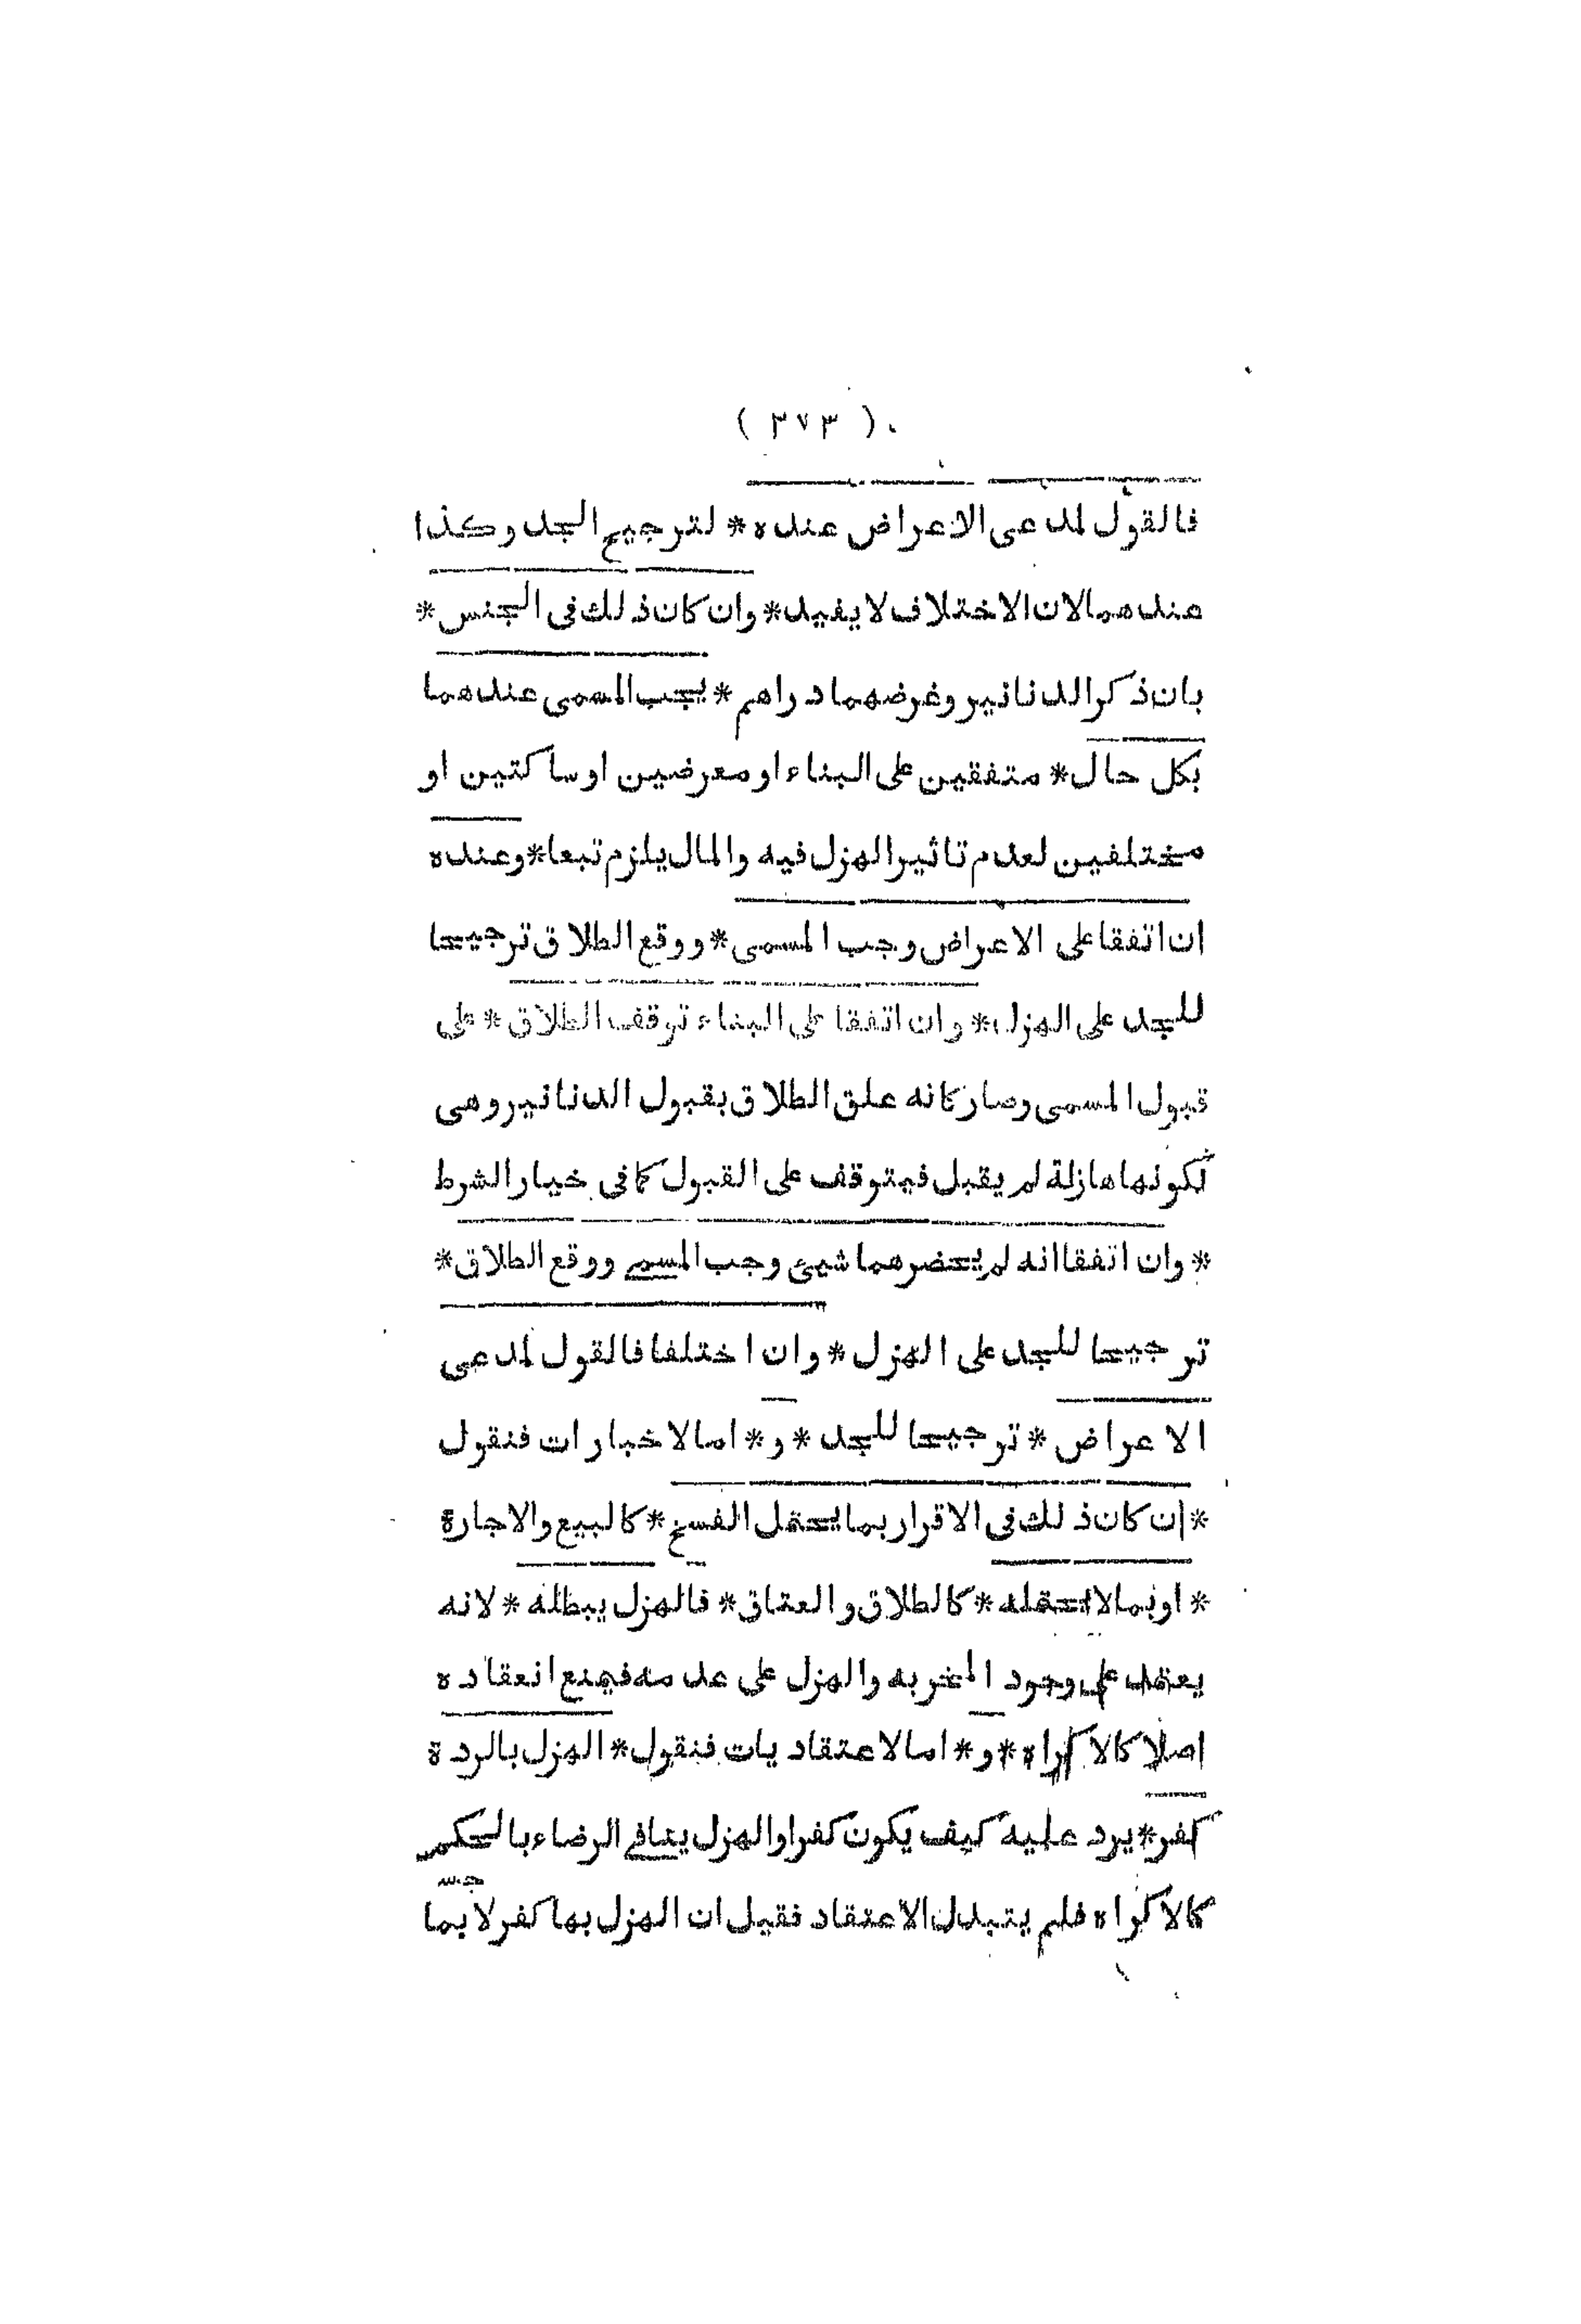 ( ٣٧٣ )
فالقول لمدعى الاعراض عنده * لترجيح الجد وكذا
عندهما لان الاختلاف لا يفيد * وان كان ذلك فى الجنس *
بان ذكر الدنانير وغرضهما دراهم * يجب المسمى عندهما
بكل حال * متفقين على البناء او معرضين او ساكتين او
مختلفين لعدم تاثير الهزل فيه والمال يلزم تبعا * وعنده
ان اتفقا على الاعراض وجب المسمى * ووقع الطلاق ترجيحا
للجد على الهزل * وان اتفقا على البناء توقف الطلاق * على
قبول المسمى وصار كانه علق الطلاق بقبول الدنانير وهى
لكونها هازلة لم يقبل فيتوقف على القبول كما فى خيار الشرط
* وان اتفقا انه لم يحضرهما شيئ وجب المسمى ووقع الطلاق *
ترجيحا للجد على الهزل * وان اختلفا فالقول لمدعى
الاعراض * ترجيحا للجد * و * اما الاخبارات فنقول
* ان كان ذلك فى الاقرار بما يحتمل الفسخ * كالبيع والاجارة
* او بما لا يحتمله * كالطلاق والعتاق * فالهزل يبطله * لانه
يعتمد على وجود المخبر به والهزل على عدمه فيمنع انعقاده
اصلا كالاكراه * و * اما الاعتقاديات فنقول * الهزل بالردة
كفر * يرد عليه كيف يكون كفرا والهزل ينافى الرضاء بالحكم
كالاكراه فلم يتبدل الاعتقاد فقيل ان الهزل بها كفر لا بما